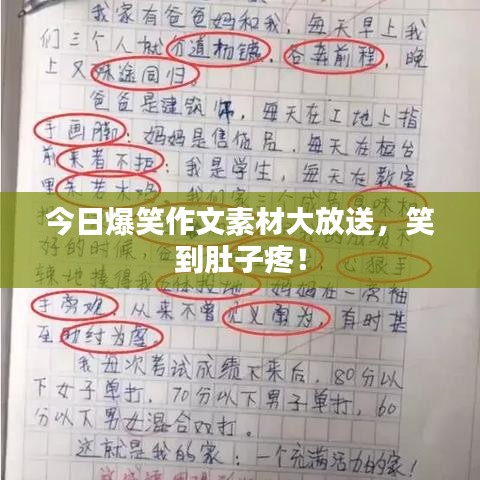 我家有爸爸妈和我，每天早上我
们三个人就分道扬镳，各奔前程，晚
上又殊途同归。
爸爸是建筑师，每天在工地上指
手画脚；妈妈是售货员，每天在柜台
前来者不拒；我是学生，每天在教室
今日爆笑作文素材大放送，笑
到肚子疼！
好的时候，
心狠手
辣地揍得我
手旁观，从来不曾见义勇为，有时甚
至助纣为虐。
我每次考试成绩下来后，80分以
下女子单打，70分以下男子单打，60
分以下男女混合双打。
这就是我的家：一个充满活力的家！